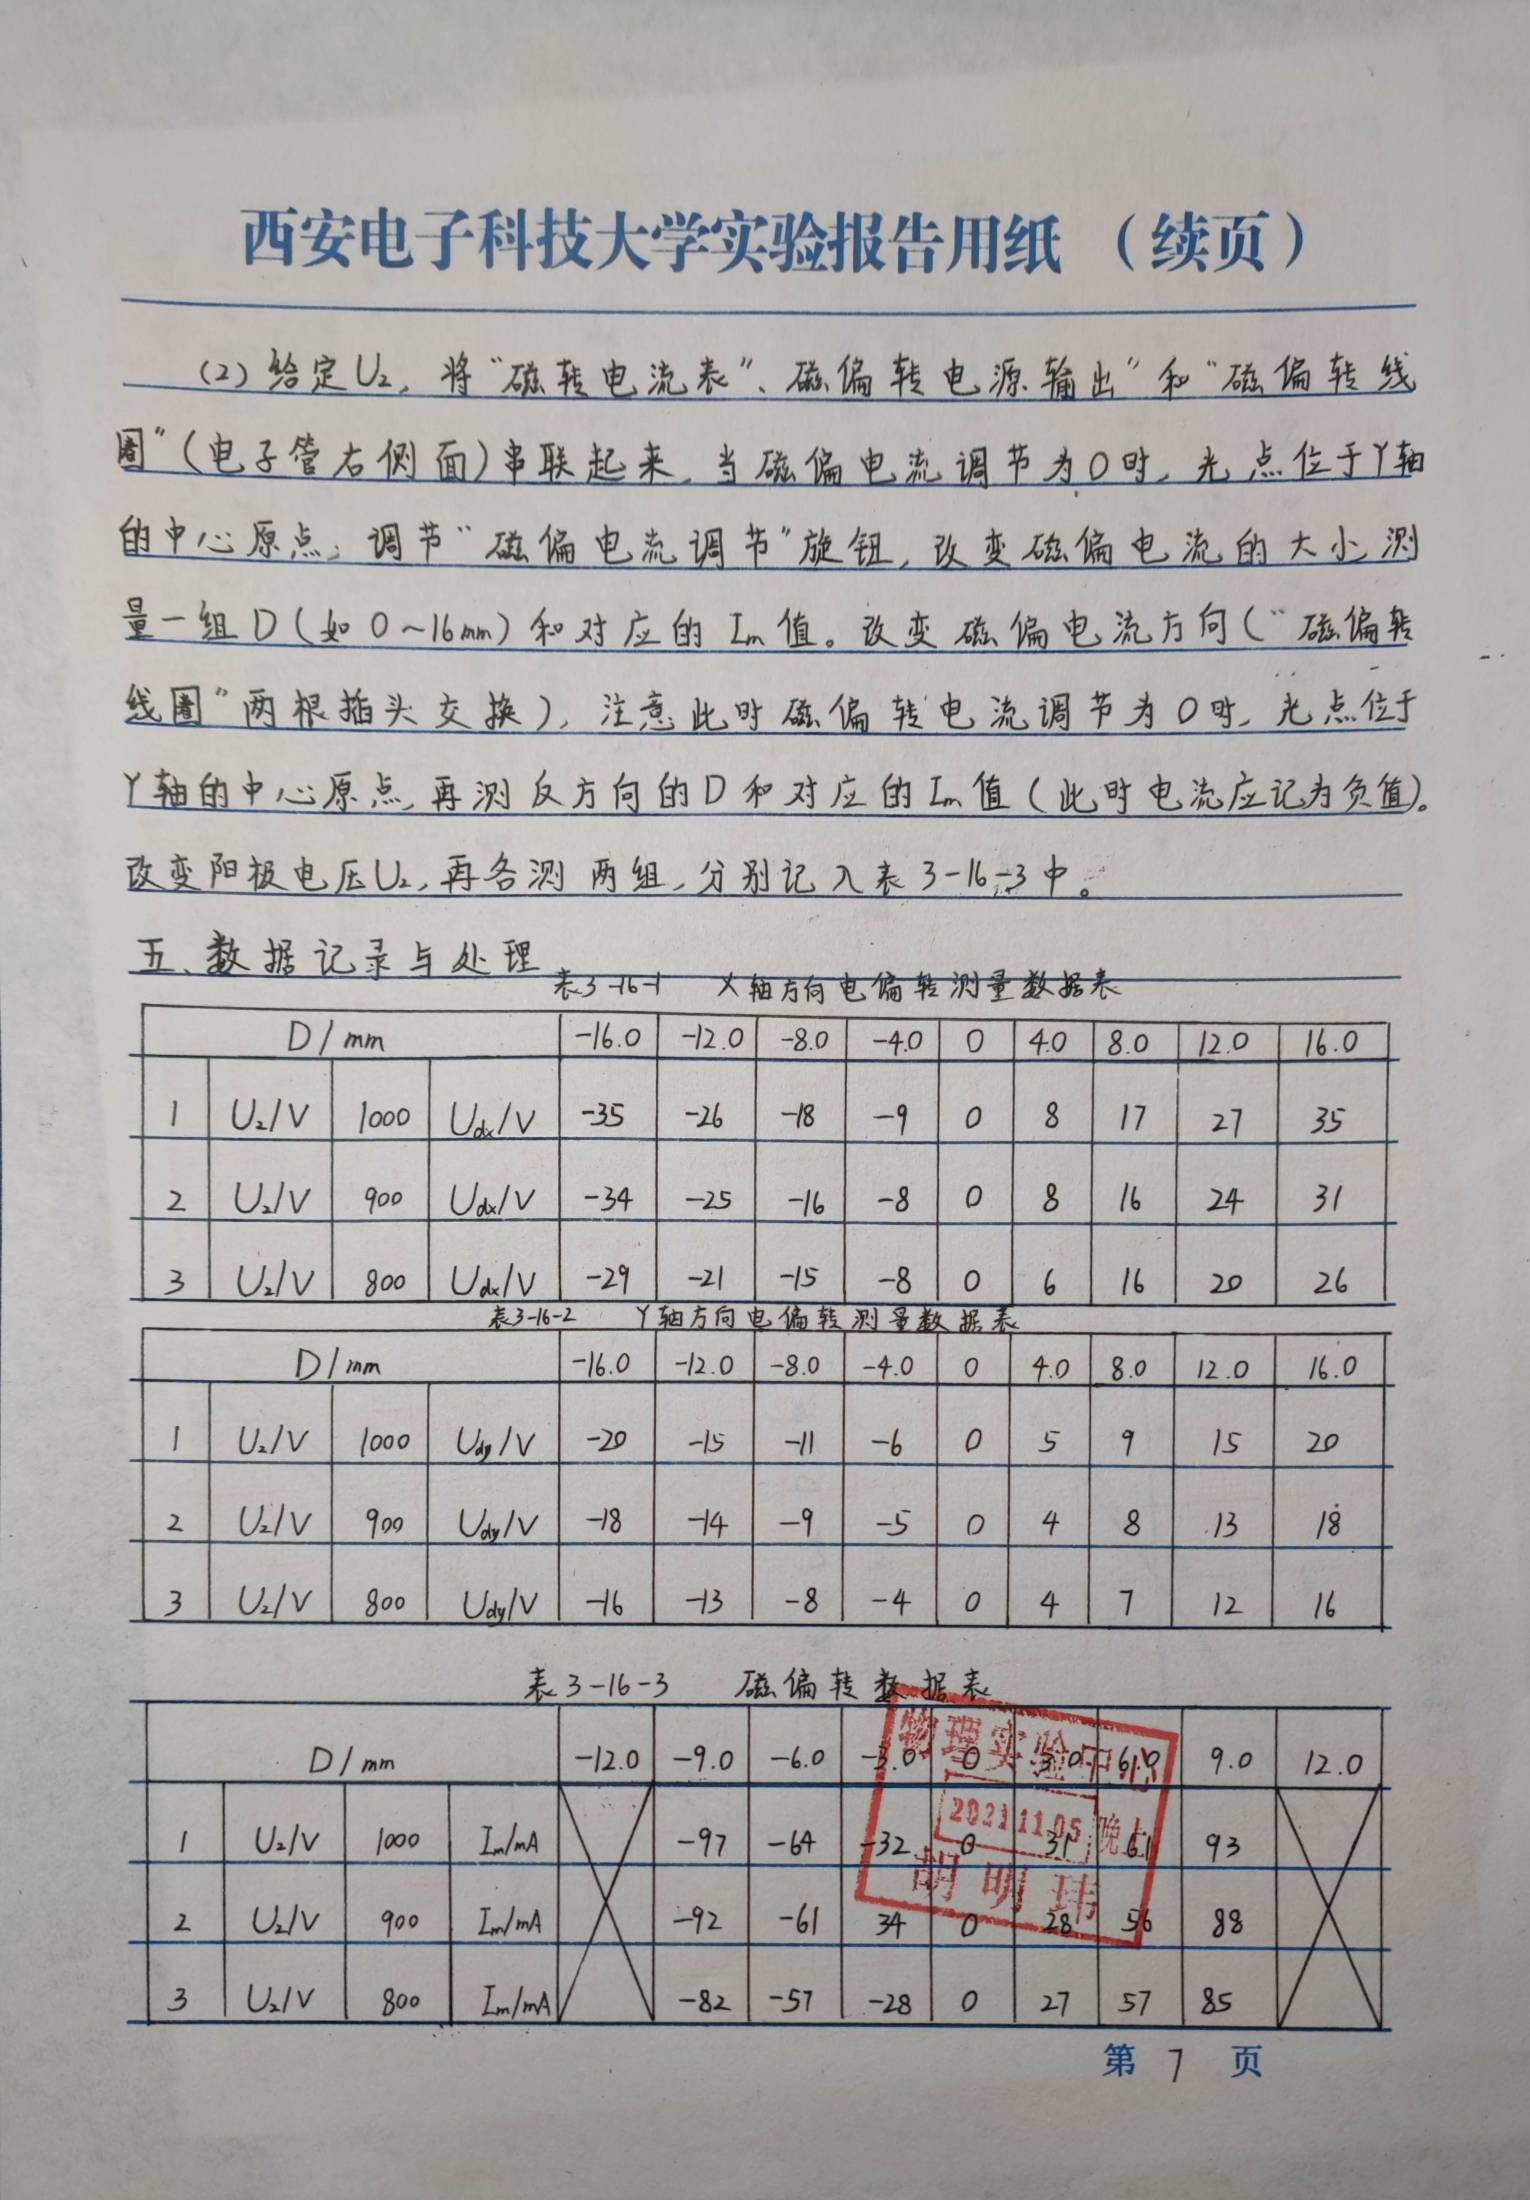 西安电子科技大学实验报告用纸 （续页）
(2) 给定U₂, 将“磁转电流表”、磁偏转电源输出”和“磁偏转线
圈”(电子管右侧面)串联起来, 当磁偏电流调节为0时, 光点位于Y轴
的中心原点; 调节“磁偏电流调节”旋钮, 改变磁偏电流的大小,测
量一组D(如0~16mm)和对应的Im值。改变磁偏电流方向(“磁偏转
线圈”两根插头交换), 注意此时磁偏转电流调节为0时, 光点位于
Y轴的中心原点, 再测反方向的D和对应的Im值(此时电流应记为负值)。
改变阳极电压U₂, 再各测两组, 分别记入表3-16-3中。
五、数据记录与处理
表3-16-1 X轴方向电偏转测量数据表
D/mm -16.0 -12.0 -8.0 -4.0 0 4.0 8.0 12.0 16.0
1 U₂/V 1000 Udx/V -35 -26 -18 -9 0 8 17 27 35
2 U₂/V 900 Udx/V -34 -25 -16 -8 0 8 16 24 31
3 U₂/V 800 Udx/V -29 -21 -15 -8 0 6 16 20 26
表3-16-2 Y轴方向电偏转测量数据表
D/mm -16.0 -12.0 -8.0 -4.0 0 4.0 8.0 12.0 16.0
1 U₂/V 1000 Udy/V -20 -15 -11 -6 0 5 9 15 20
2 U₂/V 900 Udy/V -18 -14 -9 -5 0 4 8 13 18
3 U₂/V 800 Udy/V -16 -13 -8 -4 0 4 7 12 16
表3-16-3 磁偏转数据表
D/mm -12.0 -9.0 -6.0 -3.0 0 3.0 6.0 9.0 12.0
1 U₂/V 1000 Im/mA -97 -64 -32 0 31 61 93
2 U₂/V 900 Im/mA -92 -61 34 0 28 56 88
3 U₂/V 800 Im/mA -82 -57 -28 0 27 57 85
物理实验中心
2021 11.05 晚上
胡明玮
第 7 页